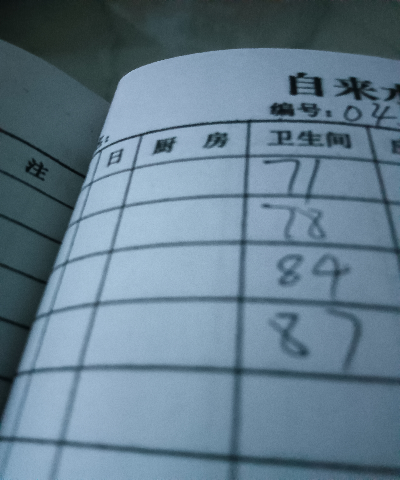 自来水
编号：04
注
日 厨房 卫生间
71
78
84
87